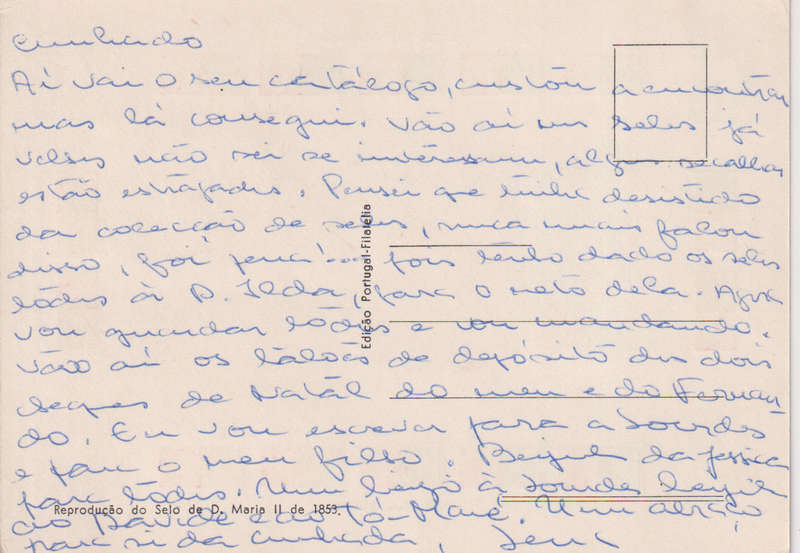 Cunhado
Aí vai o seu catálogo, custou a encontrar
mas lá consegui. Vão aí uns selos já
velhos não sei se interessam, alguns secalhar
estão estragados. Pensei que tinha desistido
da colecção de selos, nunca mais falou
disso, foi pena pois tenho dado os selos
todos à D. Ilda, para o neto dela. Agora
vou guardar todos e vou mandando.
Vão aí os talões de depósito dos dois
cheques de Natal do meu e do Fernan-
do. Eu vou escrever para a Lourdes
e para o meu filho. Beijinhos da Jessica
para todos. Um beijo à Lourdes beijinhos
ao David e ao Tó-Mané. Um abraço
para si da cunhada,
Edição Portugal-Filatélia
Reprodução do Selo de D. Maria II de 1853.